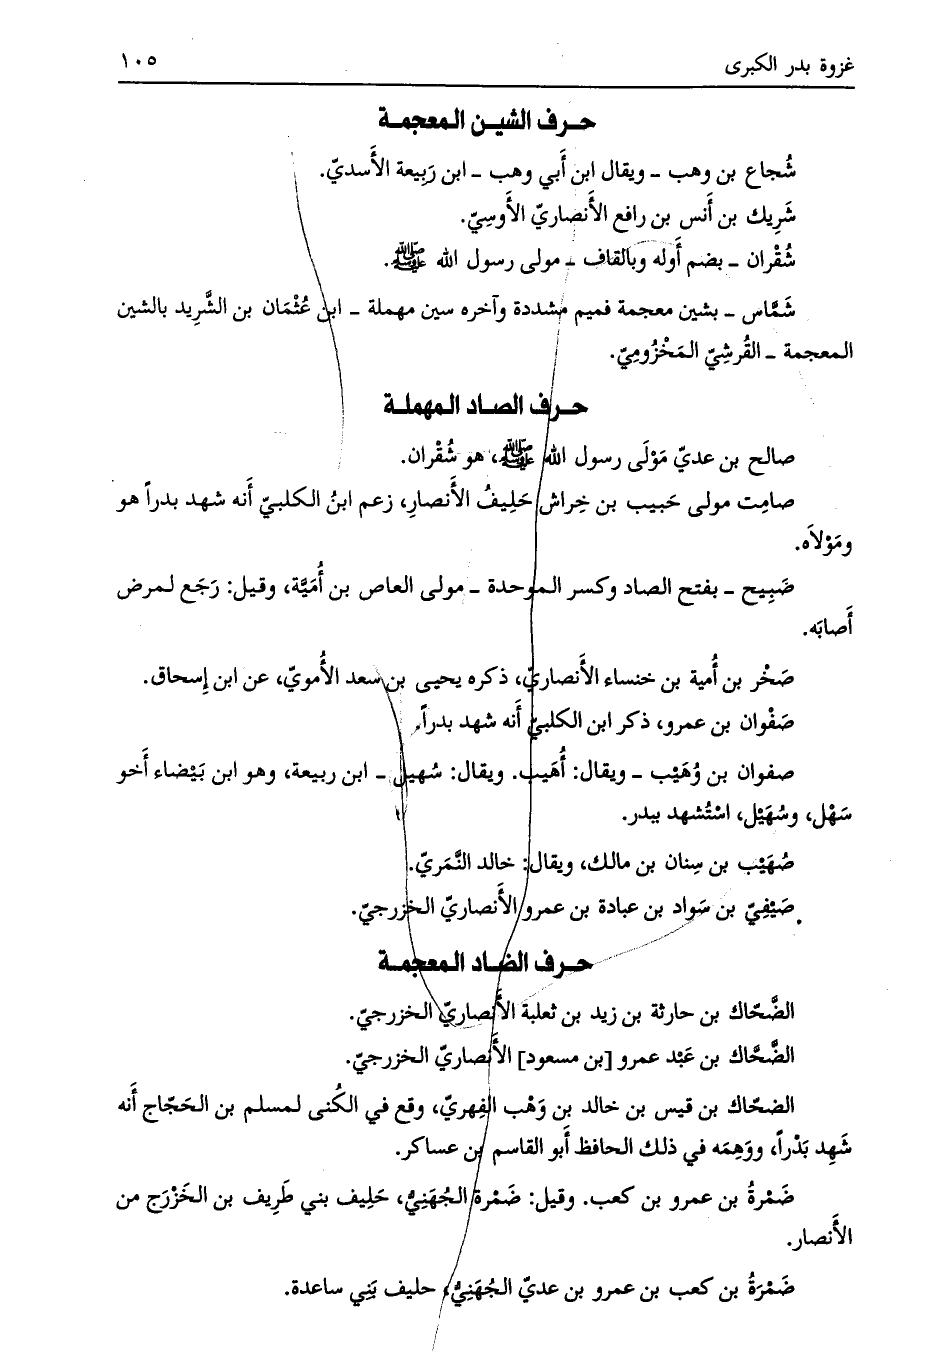 غزوة بدر الكبرى ١٠٥
حرف الشين المعجمة
شُجاع بن وهب ــ ويقال ابن أَبي وهب ــ ابن رَبِيعة الأَسديّ.
شَرِيك بن أَنس بن رافع الأَنصاريّ الأَوسِيّ.
شُقْران ــ بضم أَوله وبالقاف ــ مولى رسول الله ﷺ.
شَمَّاس ــ بشين معجمة فميم مشددة وآخره سين مهملة ــ ابن عُثْمَان بن الشَّرِيد بالشين
المعجمة ــ القُرشِيّ المَخْزُومِيّ.
حرف الصاد المهملة
صالح بن عديّ مَوْلَى رسول الله ﷺ، هو شُقْران.
صامِت مولى حَبيب بن خِراش حَلِيفُ الأَنصارِ، زعم ابنُ الكلبيّ أَنه شهد بدراً هو
ومَوْلاَه.
صَبِيح ــ بفتح الصاد وكسر الموحدة ــ مولى العاص بن أُمَيَّة، وقيل: رَجَع لمرض
أَصابَه.
صَخْر بن أُمية بن خنساء الأَنصاريّ، ذكره يحيى بن سعد الأُمويّ، عن ابن إِسحاق.
صَفْوان بن عمرو، ذكر ابن الكلبيّ أَنه شهد بدراً.
صفوان بن وُهَيْب ــ ويقال: أُهَيب. ويقال: سُهيل ــ ابن ربيعة، وهو ابن بَيْضاء أَخو
سَهْل، وسُهَيْل، اسْتُشهد ببدر.
صُهَيْب بن سِنان بن مالك، ويقال: خالد النَّمَريّ.
صَيْفِيّ بن سَواد بن عبادة بن عمرو الأَنصاريّ الخزرجيّ.
حرف الضاد المعجمة
الضَّحّاك بن حارثة بن زيد بن ثعلبة الأَنصاريّ الخزرجيّ.
الضَّحَّاك بن عَبْد عمرو [بن مسعود] الأَنصاريّ الخزرجيّ.
الضحّاك بن قيس بن خالد بن وَهْب الفِهريّ، وقع في الكُنى لمسلم بن الحَجّاج أَنه
شَهِد بَدْراً، ووَهِمَه في ذلك الحافظ أَبو القاسم بن عساكر.
ضَمْرةُ بن عمرو بن كعب. وقيل: ضَمْرة الجُهَنِيُّ، حَلِيف بني طَرِيف بن الخَزْرَج من
الأَنصار.
ضَمْرَةُ بن كعب بن عمرو بن عديّ الجُهَنِيُّ، حليف بَنِي ساعدة.